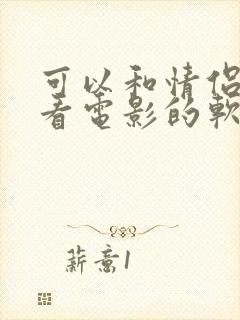 可以和情侣
看电影的軟
薪意1